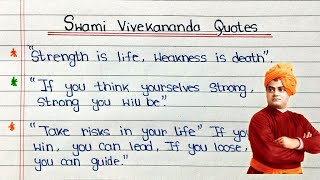 Swami Vivekananda Quotes
"Strength is life, Weakness is death"
"If you think yourselves strong,
Strong you will be."
"Take risks in your life" If you
win, you can lead, If you loose,
you can guide."